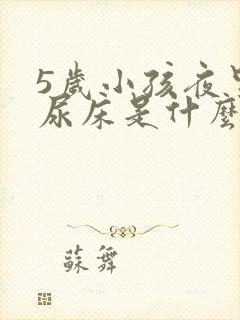 5歲小孩夜里
尿床是什麼
蘇舞